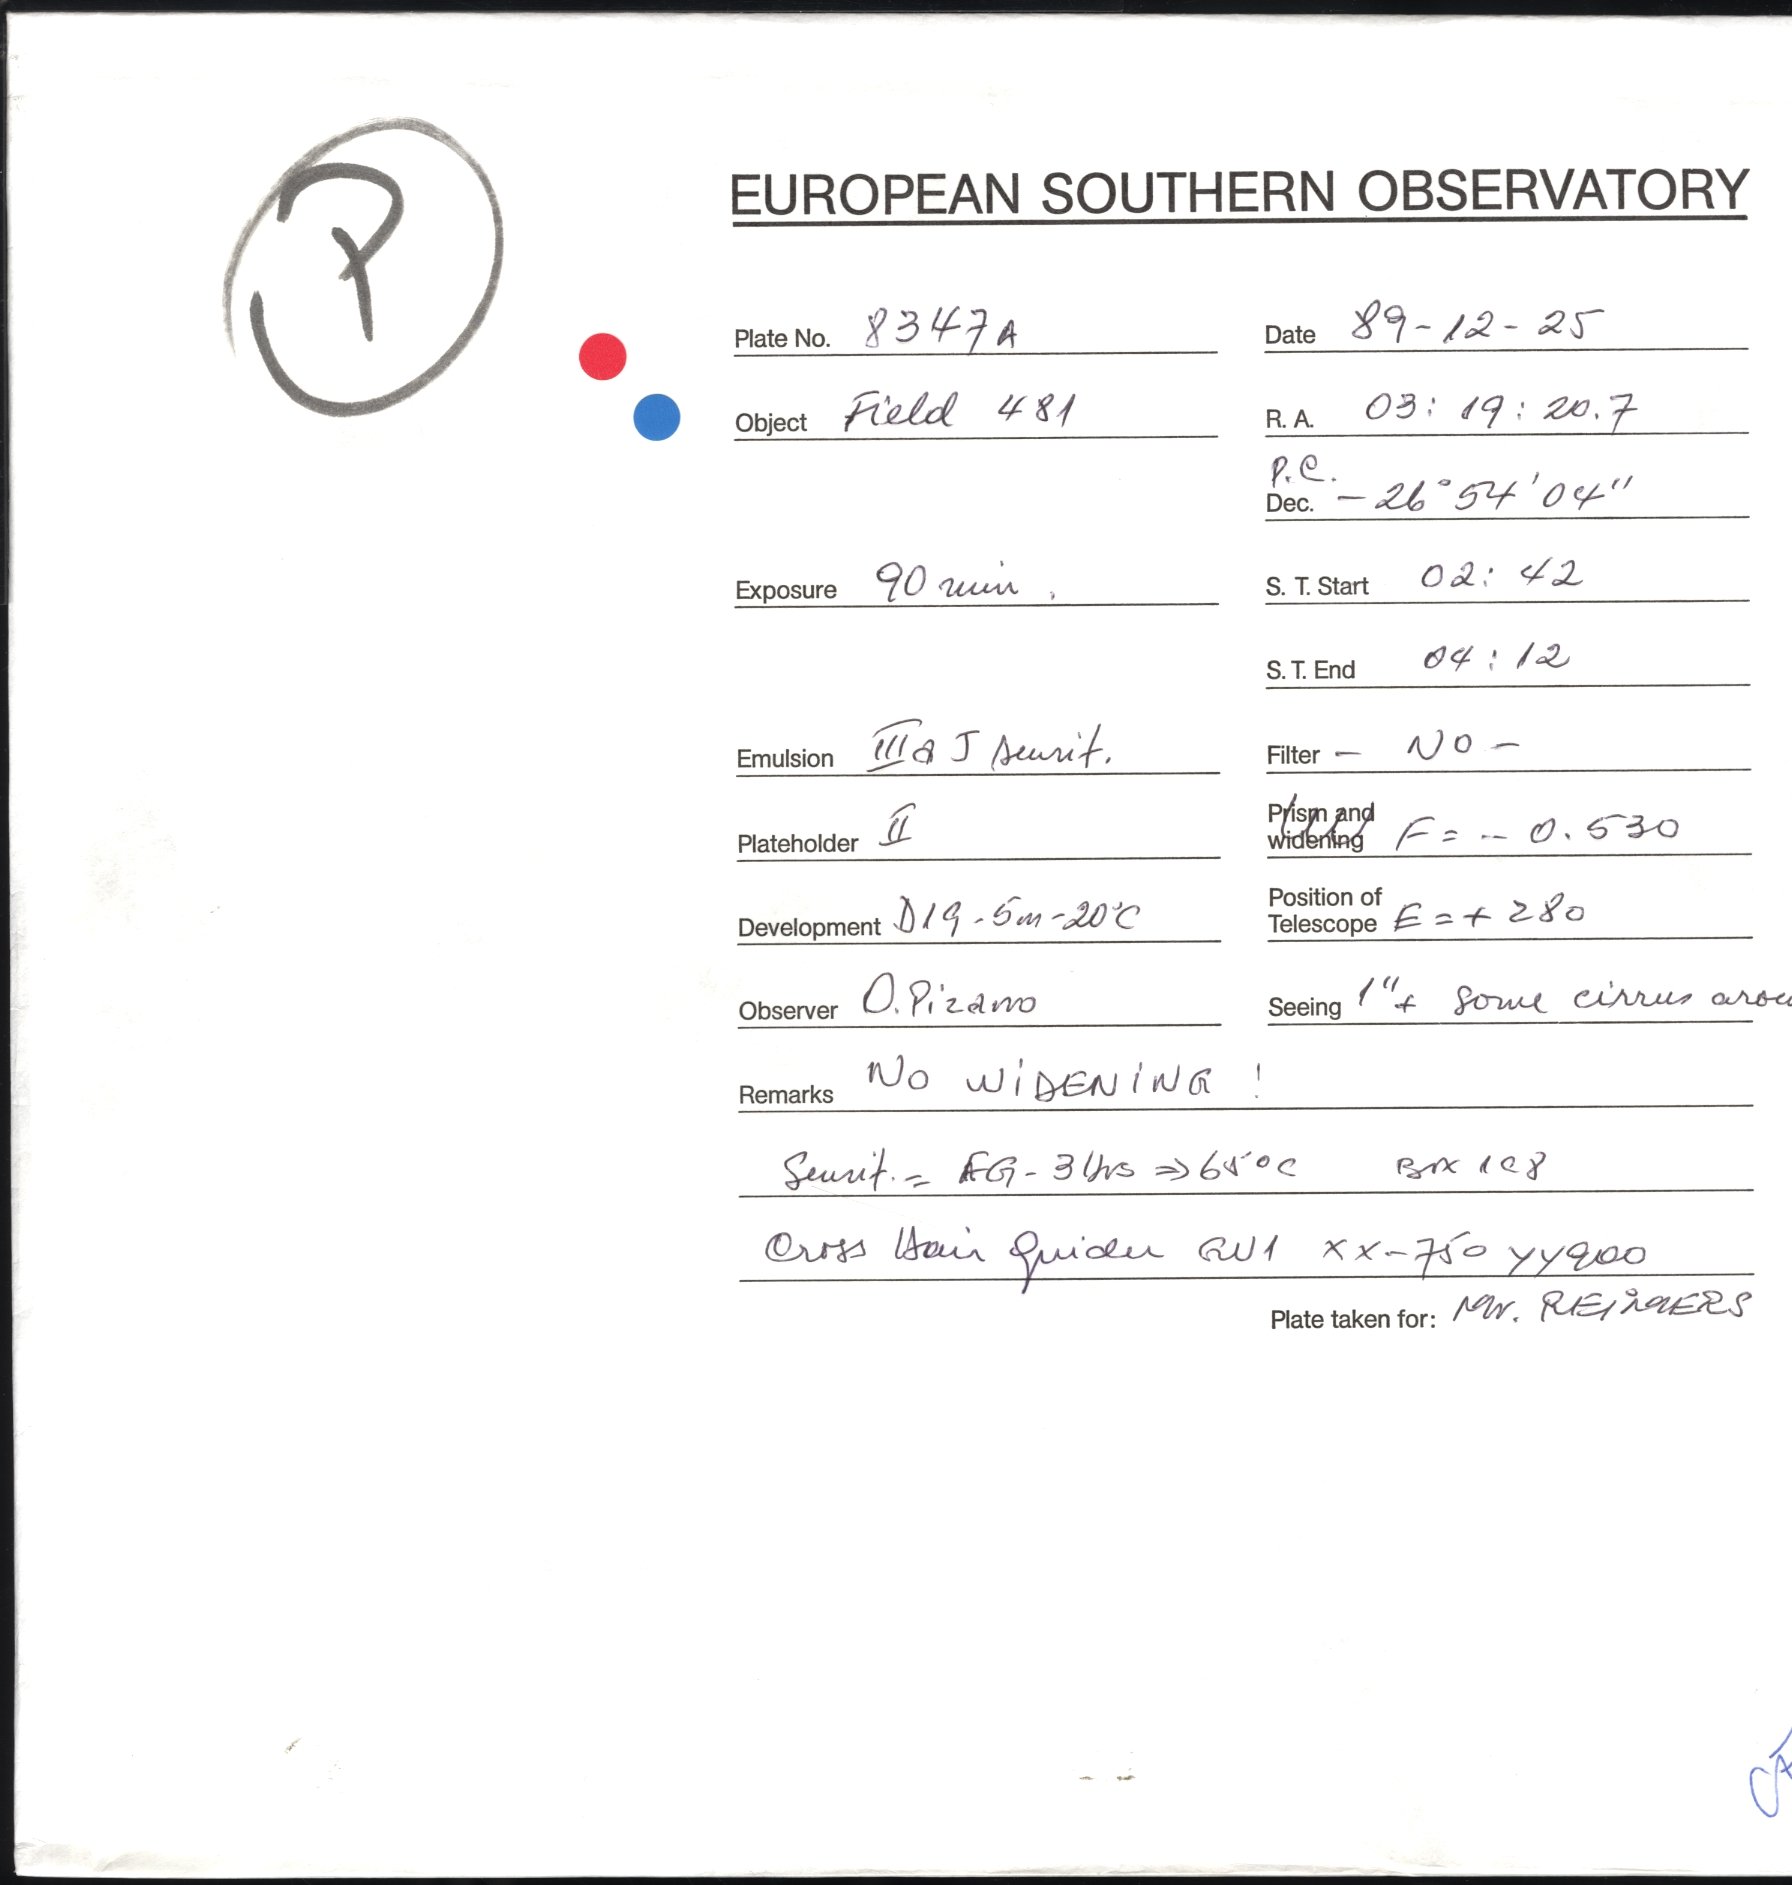 P
EUROPEAN SOUTHERN OBSERVATORY
Plate No. 8347A
Date 89-12-25
Object Field 481
R. A. 03: 19: 20.7
P.C.
Dec. -26°54'04"
Exposure 90 min.
S. T. Start 02: 42
S. T. End 04: 12
Emulsion IIIa J sensit.
Filter - NO -
Plateholder II
Prism and
widening F = - 0.530
Development D19-5m-20°C
Position of
Telescope E = + 280
Observer O. Pizarro
Seeing 1"+ some cirrus
Remarks NO WIDENING !
Sensit. = FG-3Hrs ⇒ 65°C Box 1C8
Cross Hair guider GW1 XX-750 YY900
Plate taken for: Mr. REIMERS